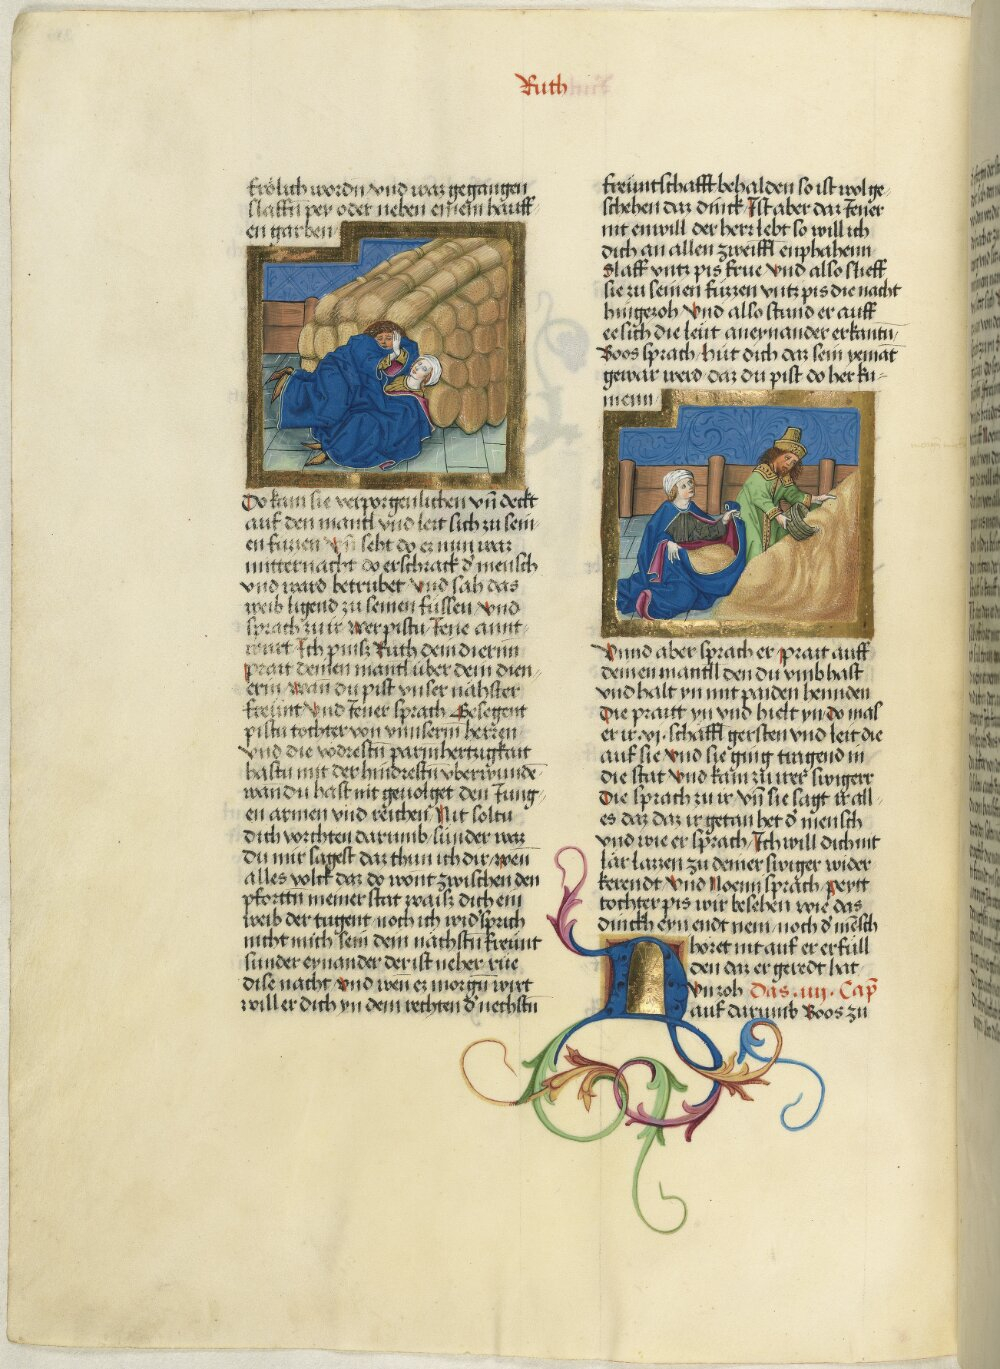 Ruth
frölich wordn vnd waz gegangen
slaffn per oder neben einem hauff
en garben
Do kam sie verporgenlichen vn̄ deckt
auf den mantl vnd leit sich zu sein
en füzzen vn̄ seht do ez nun waz
mitternacht do erschrack d' mensch
vnd ward betrubet vnd sah das
weib ligend zu seinen füssen vnd
sprach zu ir wer pistu Jene annt
wurt Ich pins Ruth dein diernn
prait deinen mantl über dein dien
erin wan du pist vnser nächster
freünt vnd Jener sprach Gesegent
pistu tochter von vnnserm herzen
vnd die vodrestn parmhertzigkait
hastu mit der hindrestn vberwunde
wan du hast nit geuolget den Jung
en armen vnd reichen Nit soltu
dich vorchten darumb sunder waz
du mir sagest daz thun ich dir wen
alles volck daz do wont zwischen den
pfortn meiner stat waisz dich ein
weib der tugent noch ich wid'sprich
nicht mich sein dem nächstn freünt
sunder eynander der ist neher rüe
dise nacht vnd wen ez morgn wirt
will er dich yn dem rechten d' nechstn
freüntschafft behalden so ist wol ge
schehen daz dinck Ist aber daz Jener
nit enwill der herr lebt so will ich
dich an allen zweiffl enphahenn
slaff vntz pis frue vnd also slieff
sie zu seinen füzzen vntz pis die nacht
hingezoh vnd also stund er auff
ee sich die leut aneynander erkantn
Boos sprach hüt dich daz sein yemat
gewar werd daz du pist do her ku
menn
Vnnd aber sprach er prait auff
deinen mantll den du vmb hast
vnd halt yn mit paiden hennden
Die praitt yn vnd hielt yn Do mas
er ir .vj. schäffl gersten vnd leit die
auf sie vnd sie ging tragend in
die stat vnd kam zu irer swigerr
Die sprach zu ir vn̄ sie sagt ir all
es daz daz ir getan het d' mensch
vnd wie er sprach Ich will dich nit
lär lazzen zu deiner swiger wider
kerendt vnd Noemi sprach peytt
tochter pis wir besehen wie das
dinckh eyn endt nem noch d' mēsch
horet nit auf er erfüll
den daz er geredt hat
Vnzoh Das .iiij. Cap̄
auf darumb Boos zu